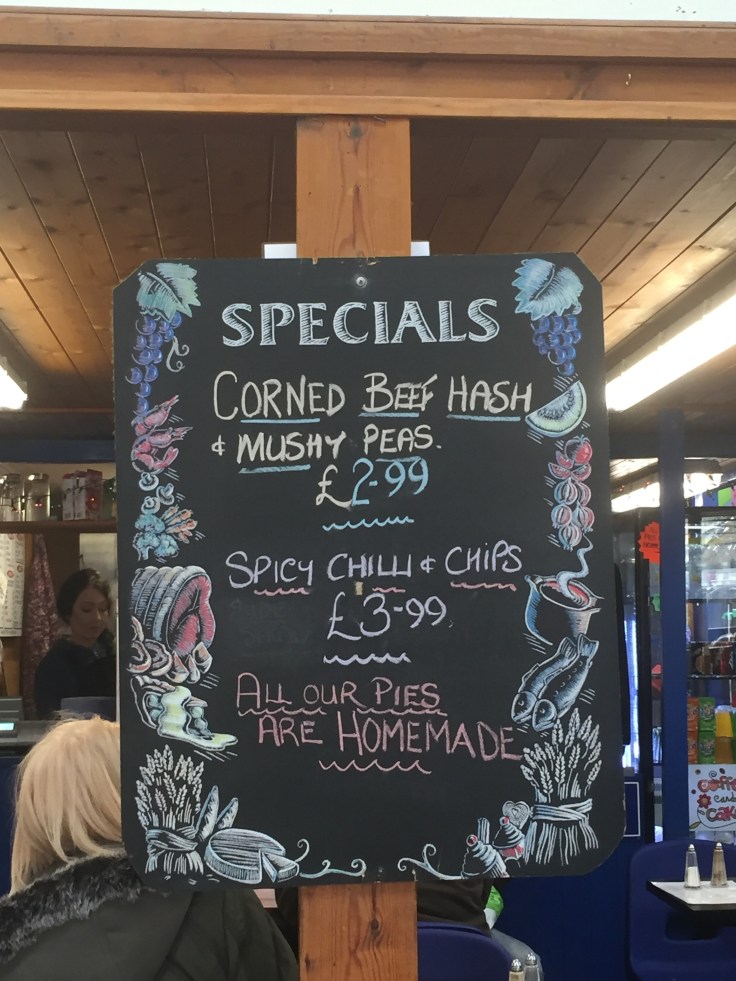 SPECIALS
CORNED BEEF HASH
& MUSHY PEAS.
£2-99
SPICY CHILLI & CHIPS
£3-99
ALL OUR PIES
ARE HOMEMADE
Coffee
Cake